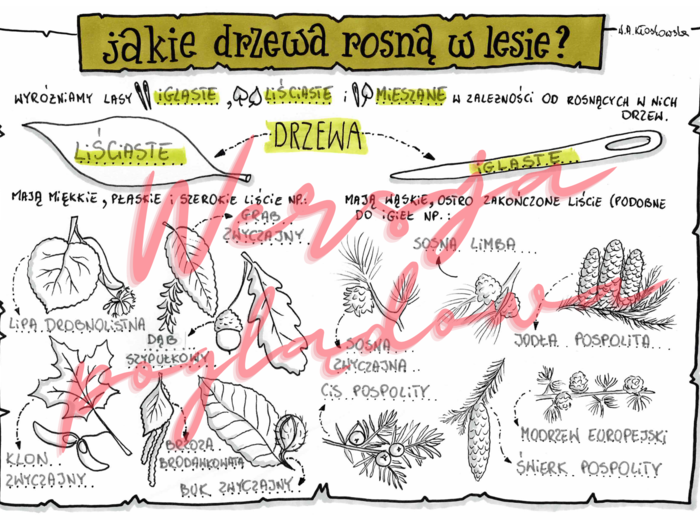 jakie drzewa rosną w lesie?
A.A. Kłosłowska
WYRÓŻNIAMY LASY IGLASTE, LIŚCIASTE i MIESZANE W ZALEŻNOŚCI OD ROSNĄCYCH W NICH
DRZEW.
DRZEWA
LIŚCIASTE
IGLASTE
MAJĄ MIĘKKIE, PŁASKIE i SZEROKIE LIŚCIE NP.:
MAJĄ WĄSKIE, OSTRO ZAKOŃCZONE LIŚCIE (PODOBNE
DO IGIEŁ NP.:
GRAB
ZWYCZAJNY
LIPA DROBNOLISTNA
DĄB
SZYPUŁKOWY
KLON
ZWYCZAJNY
BRZOZA
BRODAWKOWATA
BUK ZWYCZAJNY
SOSNA LIMBA
SOSNA
ZWYCZAJNA
JODŁA POSPOLITA
CIS POSPOLITY
MODRZEW EUROPEJSKI
ŚWIERK POSPOLITY
Wersja
poglądowa